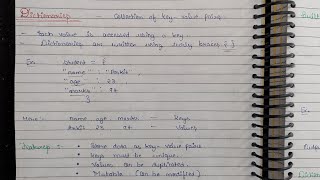 Dictionaries - Collection of key-value pairs.
- Each value is accessed using a key.
- Dictionaries are written using curly braces { }
Ex: student = {
"name" : "Ankit",
"age" : 21,
"marks" :
}
Here: name age marks - keys
Ankit 21 - Values
• Store data as key-value pairs
• Keys must be unique.
• Values can be duplicated.
• Mutable (can be modified)